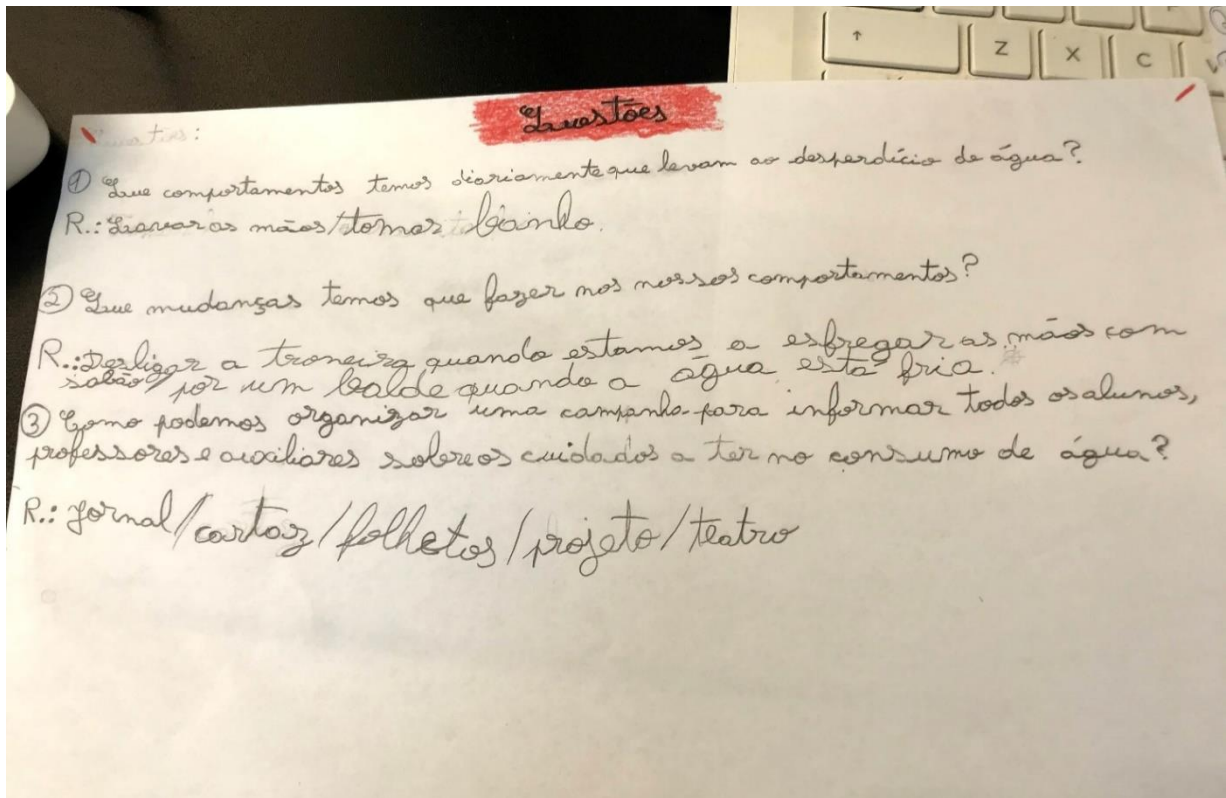 Questões
① Que comportamentos temos diariamente que levam ao desperdício de água?
R.: Lavar as mãos/tomar banho.
② Que mudanças temos que fazer nos nossos comportamentos?
R.: Desligar a troneira quando estamos a esfregar as mãos com
sabão/pôr um balde quando a água está fria.
③ Como podemos organizar uma campanha para informar todos os alunos,
professores e auxiliares sobre os cuidados a ter no consumo de água?
R.: Jornal/cartaz/folhetos/projeto/teatro
↑ Z X C